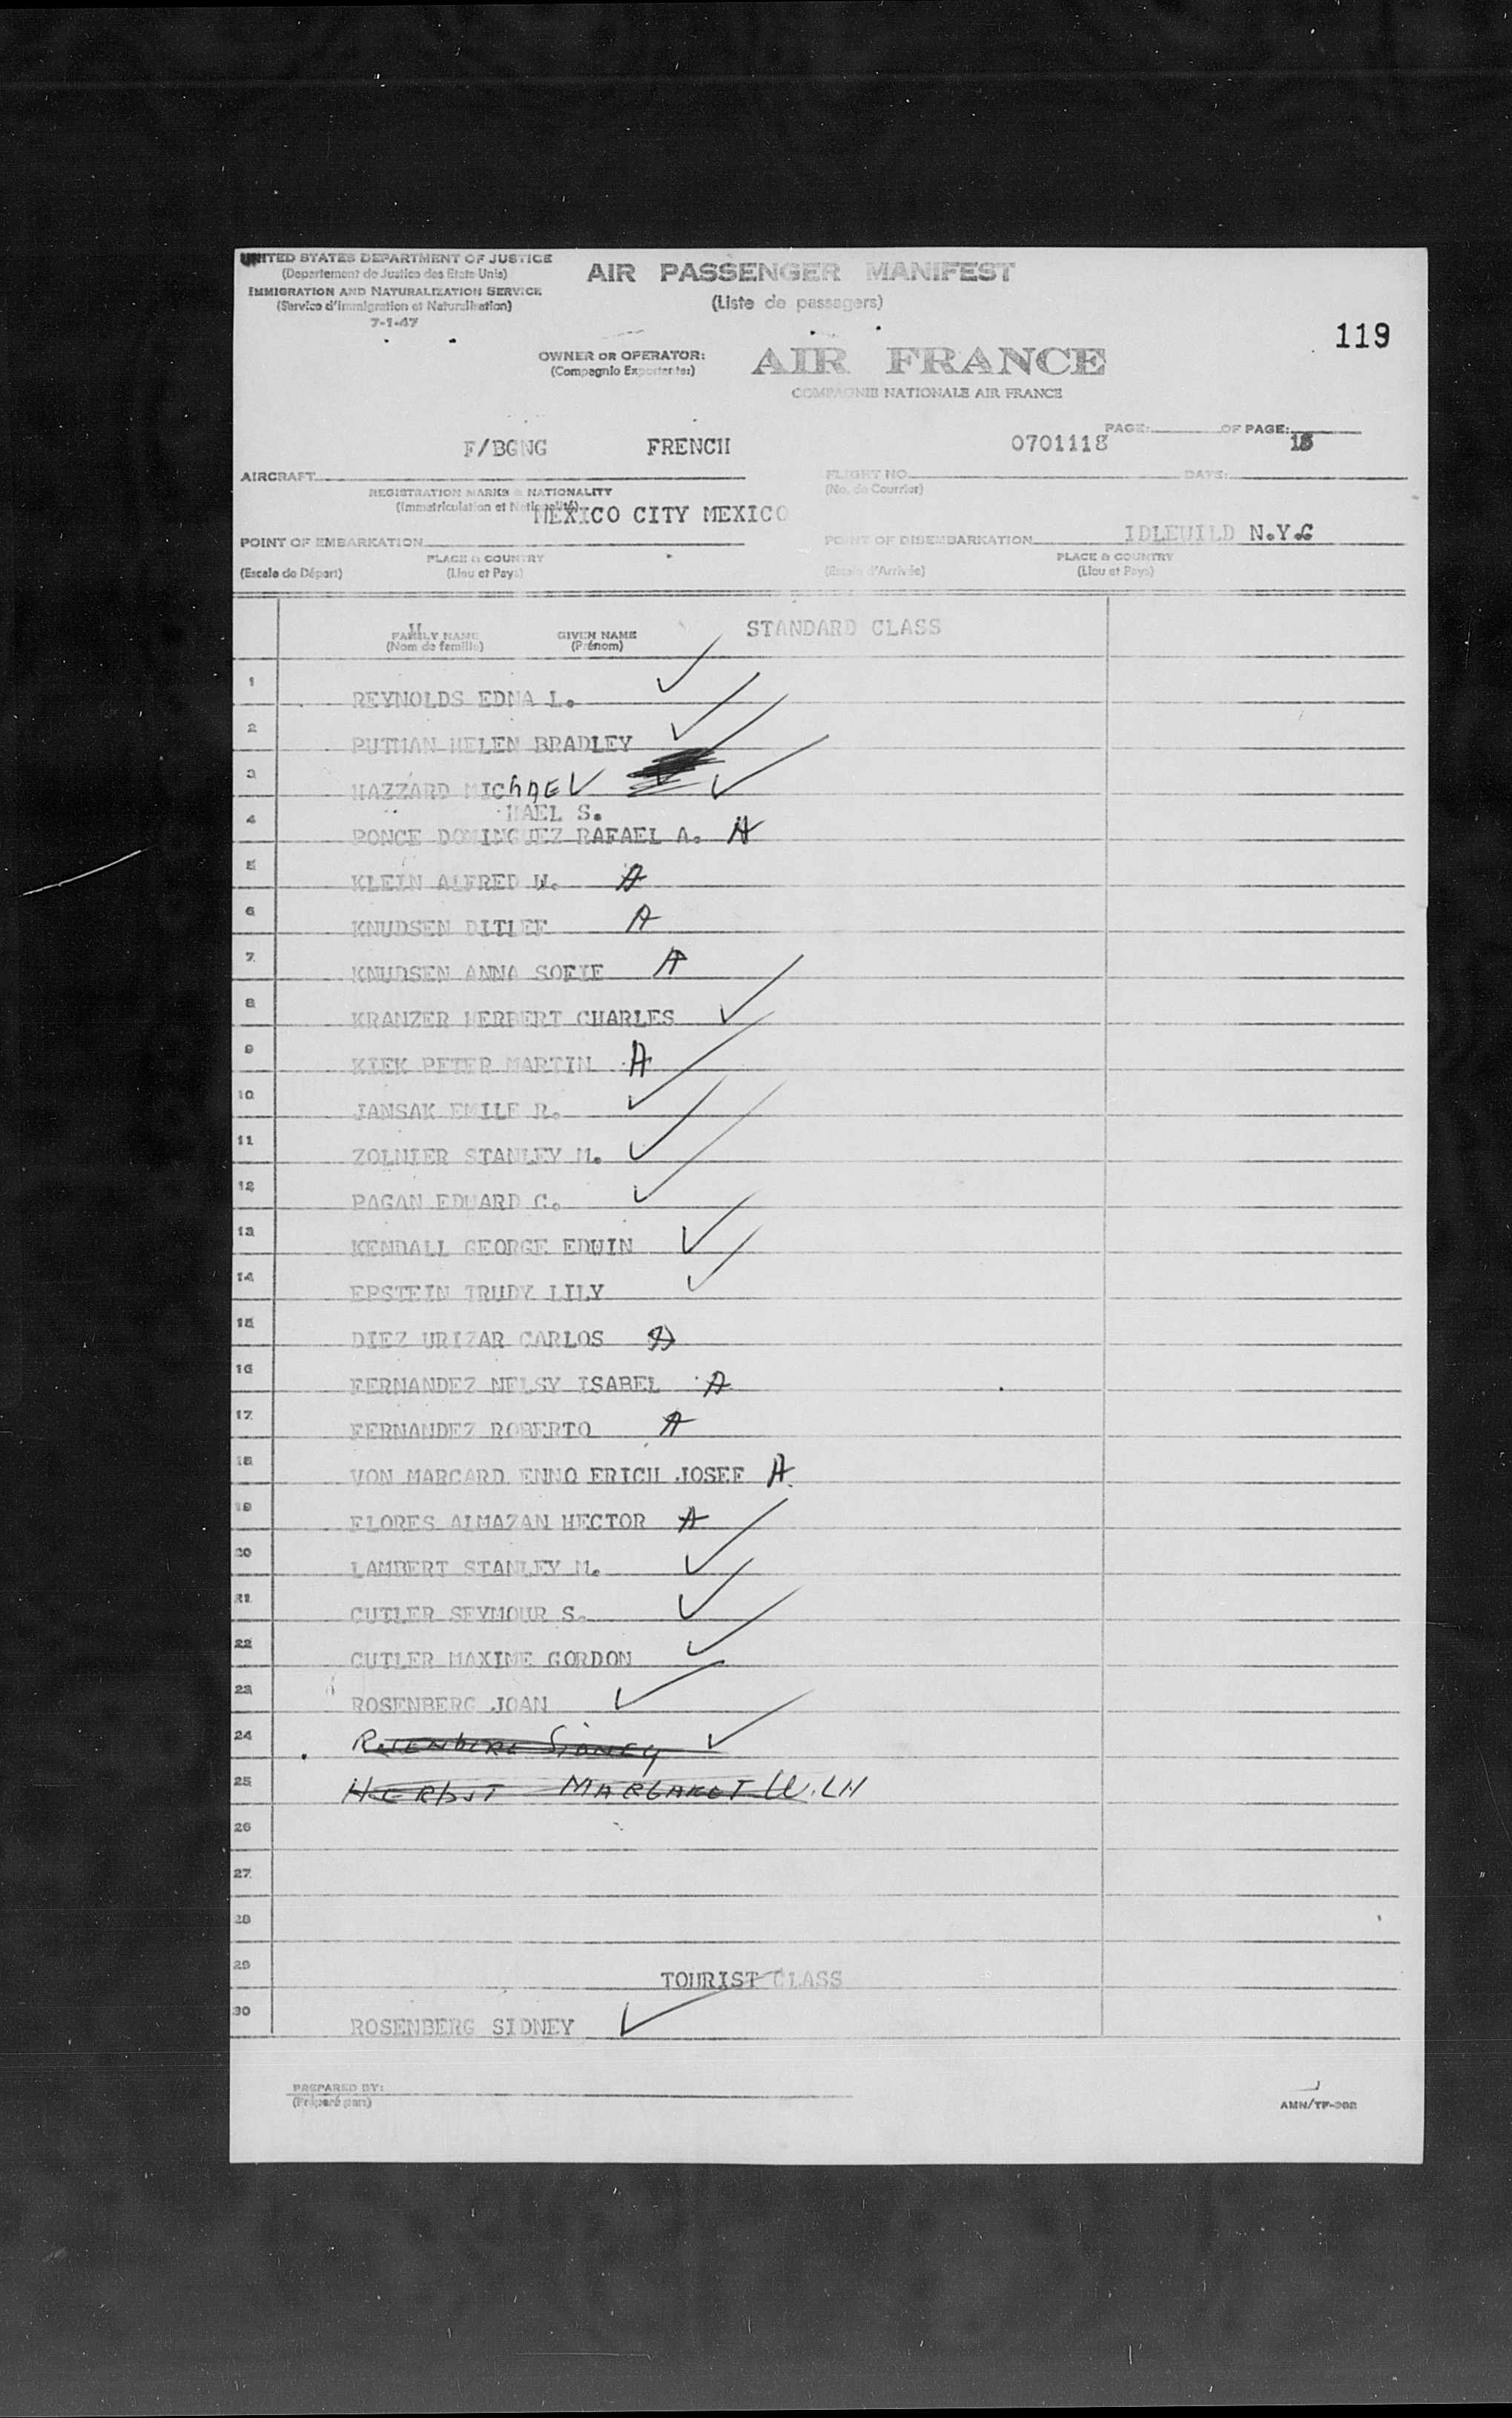 UNITED STATES DEPARTMENT OF JUSTICE
(Departement de Justice des Etats-Unis)
IMMIGRATION AND NATURALIZATION SERVICE
(Service d'Immigration et Naturalisation)
7-1-47
AIR PASSENGER MANIFEST
(Liste de passagers)
119
OWNER OR OPERATOR:
(Compagnie Exportante:)
AIR FRANCE
COMPAGNIE NATIONALE AIR FRANCE
PAGE: OF PAGE:
F/BGNG FRENCH 0701118
AIRCRAFT FLIGHT NO. DATE:
REGISTRATION MARKS & NATIONALITY (No. de Courrier)
(Immatriculation et Nationalité)
MEXICO CITY MEXICO
IDLEWILD N.Y.
POINT OF EMBARKATION POINT OF DISEMBARKATION
PLACE & COUNTRY PLACE & COUNTRY
(Escale de Départ) (Lieu et Pays) (Escale d'Arrivée) (Lieu et Pays)
STANDARD CLASS
FAMILY NAME GIVEN NAME
(Nom de famille) (Prénom)
1 REYNOLDS EDNA L.
2 PUTMAN HELEN BRADLEY
3 HAZZARD MICHAEL
HAEL S.
4 PONCE DOMINGUEZ RAFAEL A. A
5 KLEIN ALFRED W. A
6 KNUDSEN DITLEF A
7 KNUDSEN ANNA SOFIE A
8 KRANZER HERBERT CHARLES
9 KIEK PETER MARTIN A
10 JANSAK EMILE R.
11 ZOLNIER STANLEY M.
12 PAGAN EDWARD C.
13 KENDALL GEORGE EDWIN
14 EPSTEIN TRUDY LILY
15 DIEZ URIZAR CARLOS A
16 FERNANDEZ NELSY ISABEL A
17 FERNANDEZ ROBERTO A
18 VON MARCARD ENNO ERICH JOSEF A
19 FLORES ALMAZAN HECTOR A
20 LAMBERT STANLEY M.
21 CUTLER SEYMOUR S.
22 CUTLER MAXINE GORDON
23 ROSENBERG JOAN
24 ROSENBERG SIDNEY
25 HERBST MARGARET
26
27
28
29 TOURIST CLASS
30 ROSENBERG SIDNEY
PREPARED BY:
(Préparé par:)
AMN/TF-302